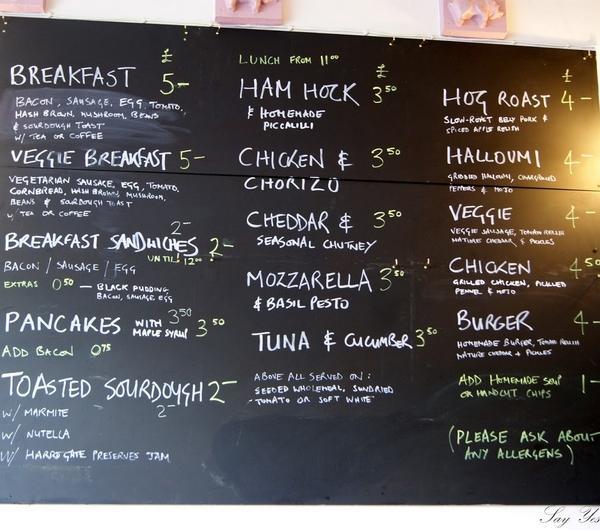 £
BREAKFAST 5-
BACON, SAUSAGE, EGG, TOMATO,
HASH BROWN, MUSHROOM, BEANS
& SOURDOUGH TOAST
W/ TEA OR COFFEE
VEGGIE BREAKFAST 5-
VEGETARIAN SAUSAGE, EGG, TOMATO,
CORNBREAD, HASH BROWNS, MUSHROOM,
BEANS & SOURDOUGH TOAST
W/ TEA OR COFFEE
2-
BREAKFAST SANDWICHES 2-
UNTIL! 12⁰⁰
BACON / SAUSAGE / EGG
EXTRAS 0⁵⁰ — BLACK PUDDING
BACON, SAUSAGE EGG
3⁵⁰
PANCAKES WITH MAPLE SYRUP 3⁵⁰
ADD BACON 0⁷⁵
TOASTED SOURDOUGH 2-
2-
W/ MARMITE
W/ NUTELLA
W/ HARROGATE PRESERVES JAM
LUNCH FROM 11⁰⁰
£
HAM HOCK 3⁵⁰
& HOMEMADE
PICCALILLI
CHICKEN & 3⁵⁰
CHORIZO
CHEDDAR & 3⁵⁰
SEASONAL CHUTNEY
MOZZARELLA 3⁵⁰
& BASIL PESTO
TUNA & CUCUMBER 3⁵⁰
ABOVE ALL SERVED ON:
SEEDED WHOLEMEAL, SUNDRIED
TOMATO OR SOFT WHITE
£
HOG ROAST 4-
SLOW-ROAST BELLY PORK &
SPICED APPLE RELISH
HALLOUMI 4-
GRIDDLED HALLOUMI, CHARGRILLED
PEPPERS & MOJO
VEGGIE 4-
VEGGIE SAUSAGE, TOMATO RELISH
MATURE CHEDDAR & PICKLES
CHICKEN 4⁵⁰
GRILLED CHICKEN, PICKLED
FENNEL & MOJO
BURGER 4-
HOMEMADE BURGER, TOMATO RELISH
MATURE CHEDDAR & PICKLES
ADD HOMEMADE SOUP 1-
OR HANDCUT CHIPS
(PLEASE ASK ABOUT
ANY ALLERGENS)
Say Yes